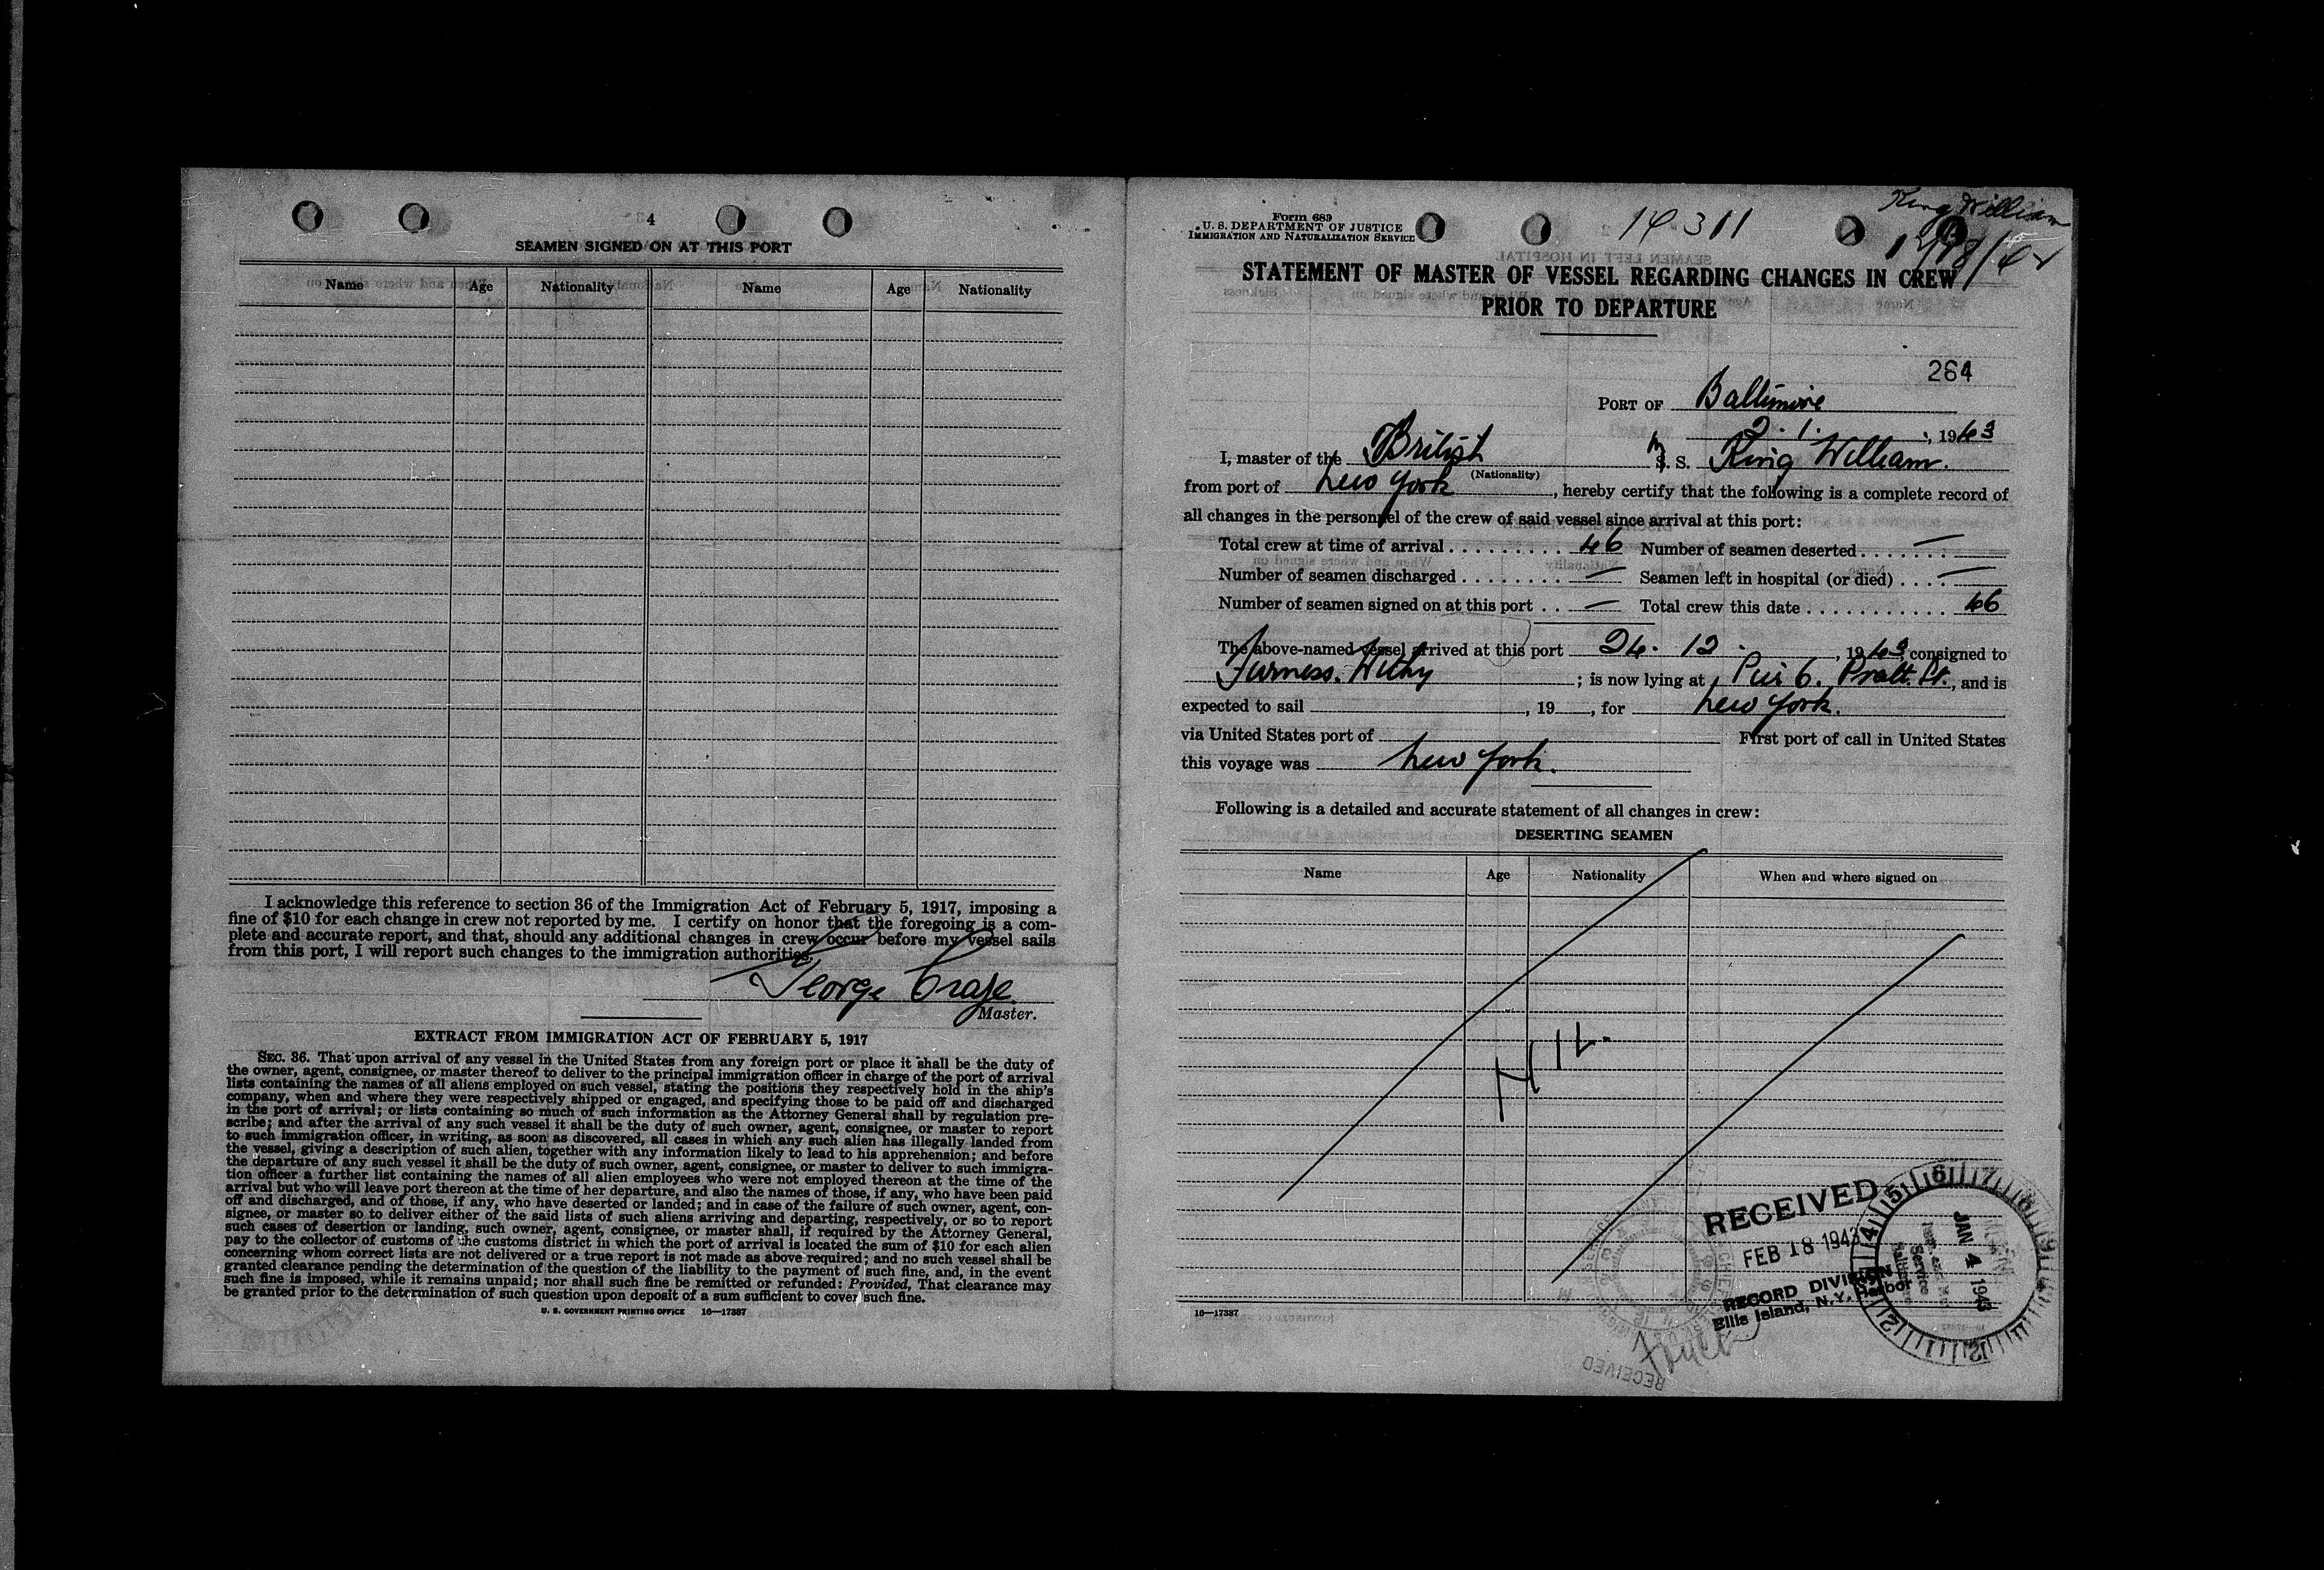 4
SEAMEN SIGNED ON AT THIS PORT
Name Age Nationality Name Age Nationality
I acknowledge this reference to section 36 of the Immigration Act of February 5, 1917, imposing a
fine of $10 for each change in crew not reported by me. I certify on honor that the foregoing is a com-
plete and accurate report, and that, should any additional changes in crew occur before my vessel sails
from this port, I will report such changes to the immigration authorities.
George
Master.
EXTRACT FROM IMMIGRATION ACT OF FEBRUARY 5, 1917
SEC. 36. That upon arrival of any vessel in the United States from any foreign port or place it shall be the duty of
the owner, agent, consignee, or master thereof to deliver to the principal immigration officer in charge of the port of arrival
lists containing the names of all aliens employed on such vessel, stating the positions they respectively hold in the ship's
company, when and where they were respectively shipped or engaged, and specifying those to be paid off and discharged
in the port of arrival; or lists containing so much of such information as the Attorney General shall by regulation pre-
scribe; and after the arrival of any such vessel it shall be the duty of such owner, agent, consignee, or master to report
to such immigration officer, in writing, as soon as discovered, all cases in which any such alien has illegally landed from
the vessel, giving a description of such alien, together with any information likely to lead to his apprehension; and before
the departure of any such vessel it shall be the duty of such owner, agent, consignee, or master to deliver to such immigra-
tion officer a further list containing the names of all alien employees who were not employed thereon at the time of the
arrival but who will leave port thereon at the time of her departure, and also the names of those, if any, who have been paid
off and discharged, and of those, if any, who have deserted or landed; and in case of the failure of such owner, agent, con-
signee, or master so to deliver either of the said lists of such aliens arriving and departing, respectively, or so to report
such cases of desertion or landing, such owner, agent, consignee, or master shall, if required by the Attorney General,
pay to the collector of customs of the customs district in which the port of arrival is located the sum of $10 for each alien
concerning whom correct lists are not delivered or a true report is not made as above required; and no such vessel shall be
granted clearance pending the determination of the question of the liability to the payment of such fine, and, in the event
such fine is imposed, while it remains unpaid; nor shall such fine be remitted or refunded: Provided, That clearance may
be granted prior to the determination of such question upon deposit of a sum sufficient to cover such fine.
U. S. GOVERNMENT PRINTING OFFICE 16—17387
Form 689
U. S. DEPARTMENT OF JUSTICE
IMMIGRATION AND NATURALIZATION SERVICE
14311
King William
STATEMENT OF MASTER OF VESSEL REGARDING CHANGES IN CREW
PRIOR TO DEPARTURE
264
PORT OF Baltimore
2.1., 1943
I, master of the British M. S. King William.
(Nationality)
from port of New York, hereby certify that the following is a complete record of
all changes in the personnel of the crew of said vessel since arrival at this port:
Total crew at time of arrival 46 Number of seamen deserted —
Number of seamen discharged — Seamen left in hospital (or died) —
Number of seamen signed on at this port — Total crew this date 46
The above-named vessel arrived at this port 24.12., 1943, consigned to
Furness. Withy; is now lying at Pier 6. Pratt. St., and is
expected to sail , 19 , for New York.
via United States port of First port of call in United States
this voyage was New York.
Following is a detailed and accurate statement of all changes in crew:
DESERTING SEAMEN
Name Age Nationality When and where signed on
NIL.
RECEIVED
FEB 18 1943
RECORD DIVISION
Ellis Island, N.Y. Harbor
JAN 4 1943
16—17387
RECEIVED